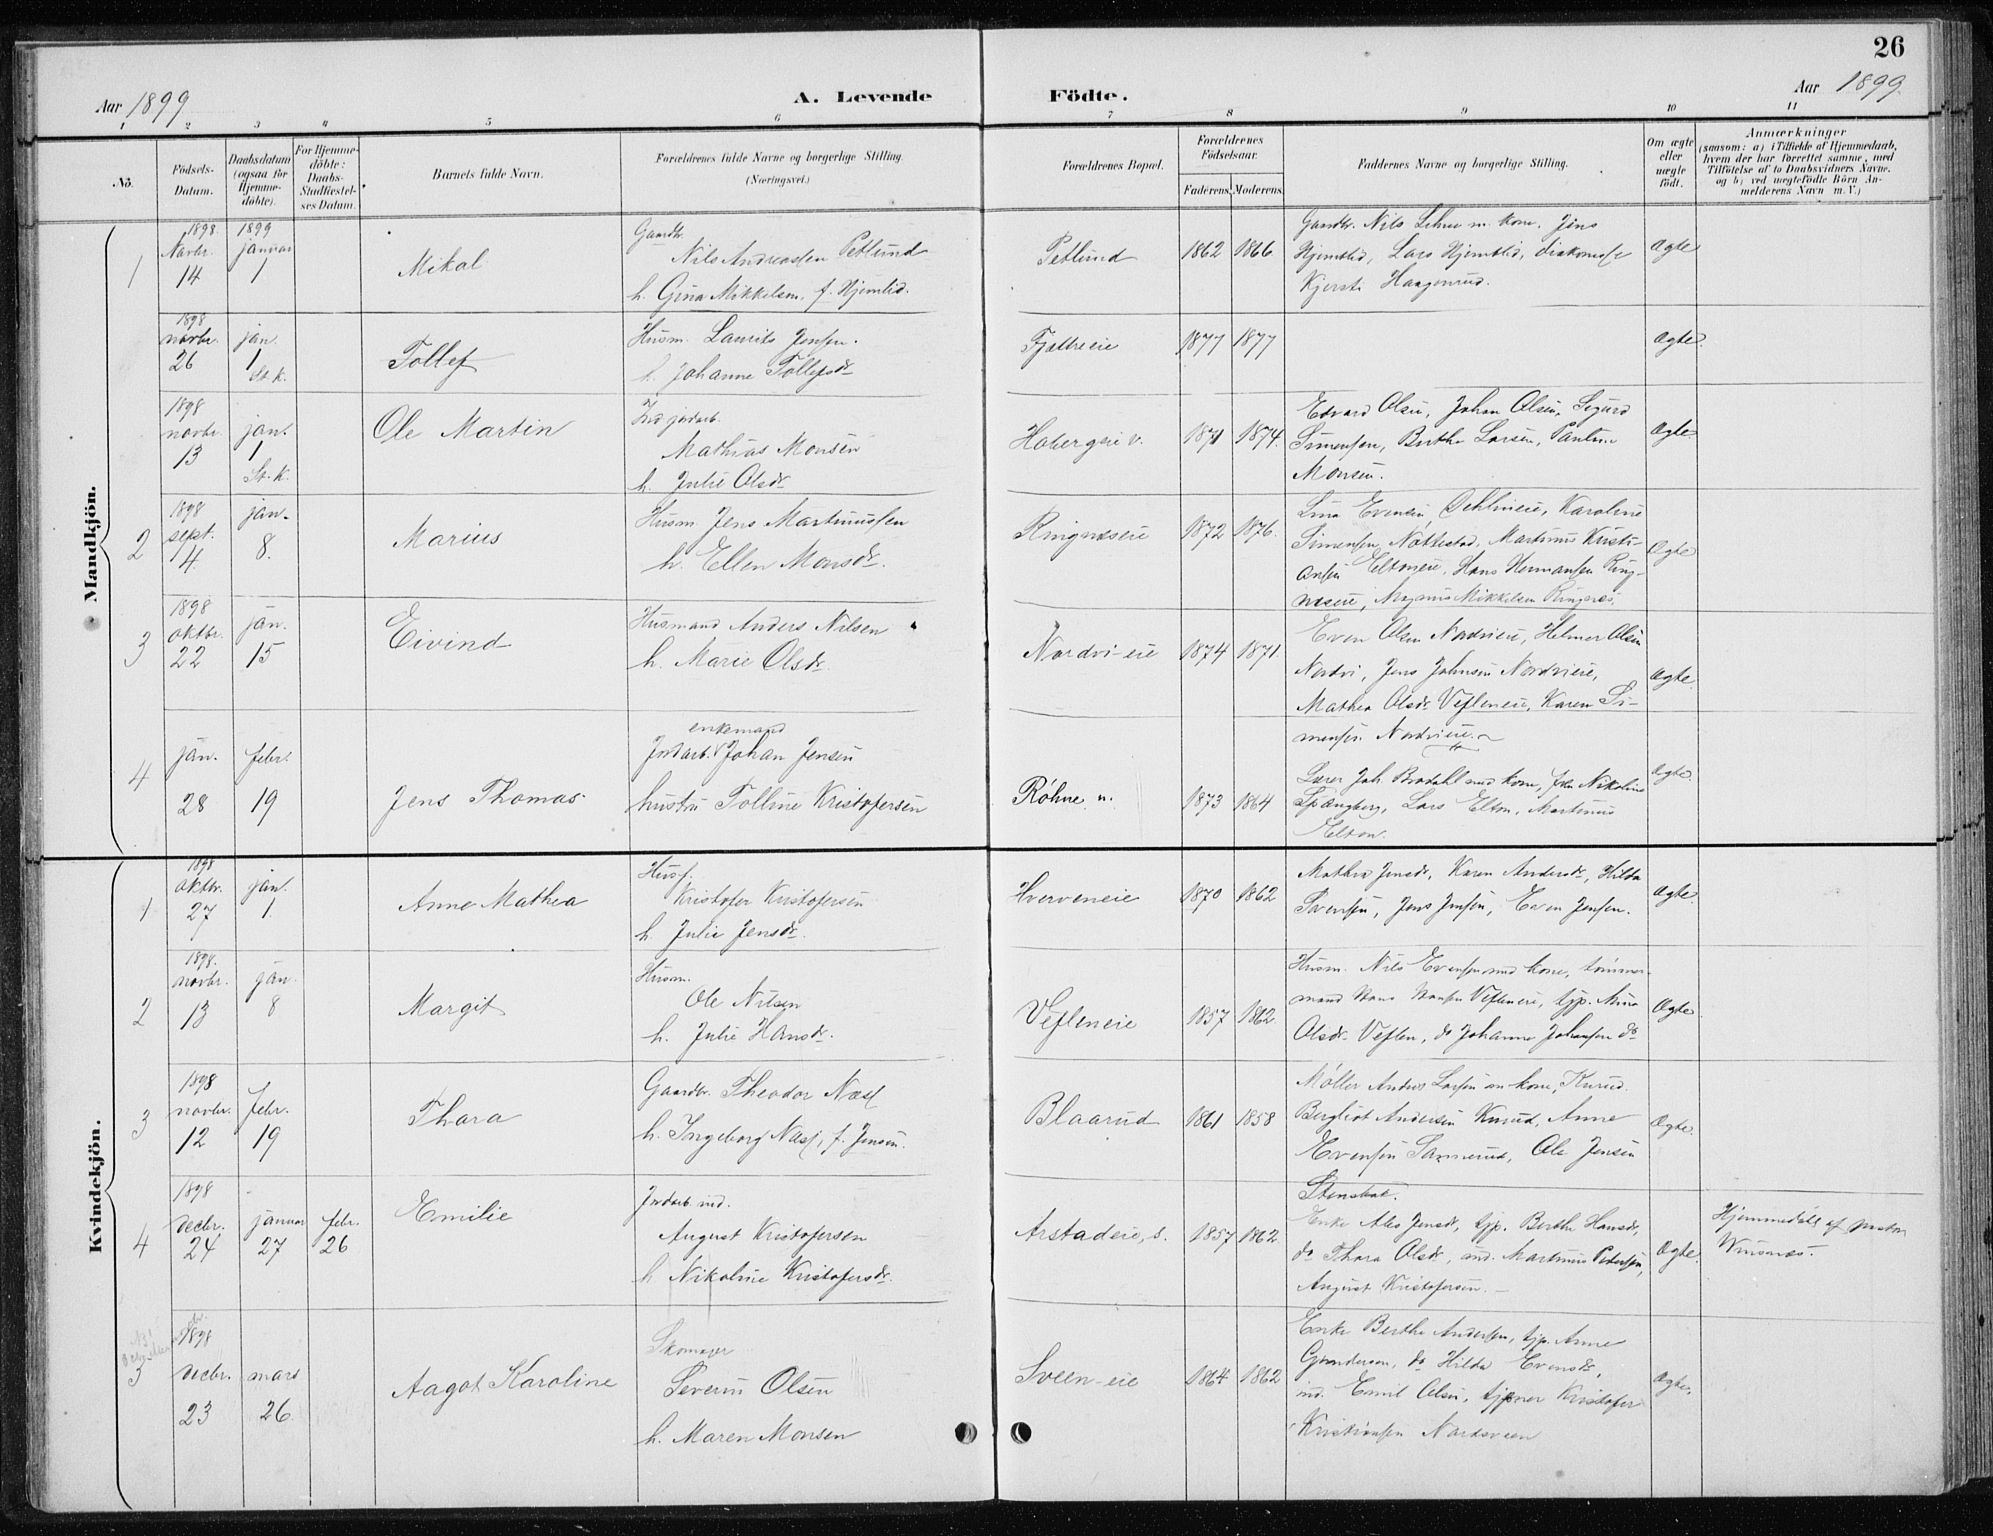 26
Aar 1899
A. Levende Födte.
Aar 1899.
1 2 3 4 5 6 7 8 9 10 11
No.
Födsels-Datum.
Daabsdatum (ogsaa for Hjemme-döbte).
For Hjemme-döbte: Daabs-Stadfæstel-ses Datum.
Barnets fulde Navn.
Forældrenes fulde Navne og borgerlige Stilling (Næringsvei.)
Forældrenes Bopæl.
Forældrenes Födselsaar.
Faderens. Moderens.
Faddernes Navne og borgerlige Stilling.
Om ægte eller uægte födt.
Anmærkninger
(saasom: a) i Tilfælde af Hjemmedaab, hvem der har forrettet samme, med Tilföielse af to Daabsvidners Navne. og b) ved uægtefödte Börn An-melderens Navn m. V.)
Mandkjön.
1 1898 Novbr. 14
1899 januar 1
Mikal
Gaardbr.
Nils Andreassen Petlund
h. Gina Mikkelsen, f. Hjemlid.
Petlund
1862 1866
Gaardbr. Nils m. kone, Jens
Hjemlid, Lars Hjemlid, diakonisse
Kjersti Haagenrud.
Ægte
1898 novbr. 26
jan. 1 St. K.
Tollef
Husm. Laurits Jensen.
h. Johanne Tollefsdr
1877 1877
Ægte
1898 novbr. 13
jan. 1 St. K.
Ole Martin
Mathias Monsen
h. Julie Olsdr
1871 1874.
Edvard Olsen, Johan Olsen, Sigurd
Simensen, Berthe Larsen, Pauline
Monsen.
Ægte
2 1898 sept. 4
jan. 8.
Marius
Husm. Jens Martinussen
h. Ellen Monsdr.
Ringnæseie
1872 1876.
Lina Evensen Karoline
Simensen, Nøttestad, Martinus Kristi-
ansen Eltoneie, Hans Hermansen Ring-
næseie, Magnus Mikkelsen Ringnæs.
Ægte
3 1898 oktbr. 22
jan. 15
Eivind
Husmand Anders Nilsen
h. Marie Olsdr.
Nordvi-eie
1874 1871.
Even Olsen Nordvieie, Helmer Olsen
Nordvi, Jens Johnsen Nordvieie,
Mathea Olsdr Vefleneie, Karen Si-
mensen Nordvieie.
Ægte.
4 jan. 28
febr. 19
Jens Thomas
enkemand
Jordarb. Johan Jensen
hustru Tolline Kristofersen
Røhne n.
1873 1864
Lærer Joh. Brodahl med kone, frk. Nikoline
Spangberg, Lars Elton, Martinus
Elton.
Ægte.
Kvindekjön.
1 1898 oktbr. 27
jan. 1
Anne Mathea
Kristofer Kristofersen
h. Julie Jensdr.
Hverveneie
1870 1862
Mathea Jensdr, Karen Andersdr, Hilda
Svensen, Jens Jensen, Even Jensen.
Ægte.
2 1898. novbr. 13
jan. 8
Margit
Husm.
Ole Nilsen
h. Julie Hansdr.
Vefleneie
1857 1862
Husm. Nils Evensen med kone, tømmer-
mand Hans Hansen Vefleneie, tjp. Mina
Olsdr Veflen, do Johanne Johansen do
Ægte.
3 1898 novbr. 12
febr. 19
Thora
Gaardbr. Theodor Næss
h. Ingeborg Næss, f. Jensen.
Blaarud
1861 1858
Møller Anders Larsen m kone, Knrud.
Bergliot Andersen Knrud, Anne
Evensen Sannerud, Ole Jensen
Stenskak.
Ægte.
4 1898 decbr. 24
januar 27
febr. 26
Emilie
Jordarb. ind.
August Kristofersen
h Nikoline Kristofersdr.
Arstadeie, s.
1857 1862
Enke Jensdr, tjp. Berthe Hansdr,
do Thora Olsdr, ind. Martinus Pedersen,
August Kristofersen. —
Ægte.
Hjemmedøbt af pastor
3 1898 decbr. 23
mars 26.
Aagot Karoline
Skomager
Severin Olsen
h. Maren Monsen
Sveen-eie
1864 1862
Enke Berthe Andersen, tjp. Anne
Gundersen, do Hilda Evensdr,
ind. Emil Olsen, tjener Kristofer
Kristiansen Nordsveen
Ægte.